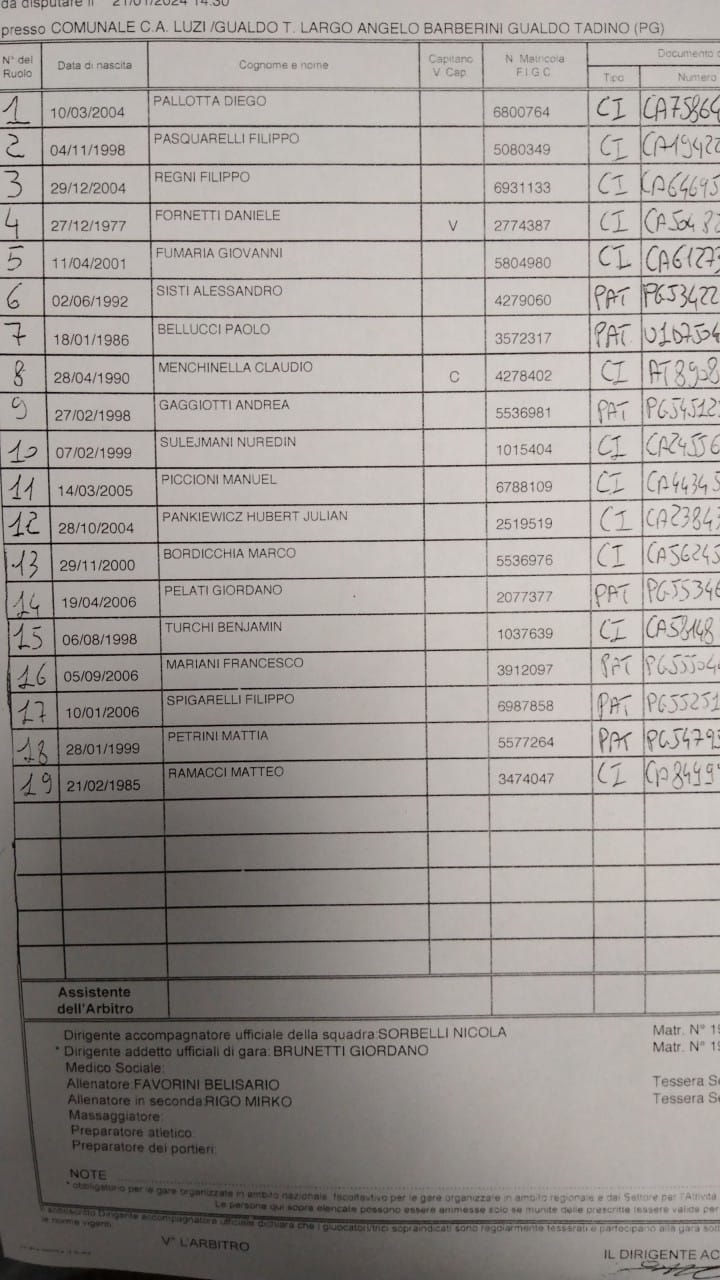 da disputare il 21/01/2024 14.30
presso COMUNALE C.A. LUZI /GUALDO T. LARGO ANGELO BARBERINI GUALDO TADINO (PG)
N° del Ruolo Data di nascita Cognome e nome Capitano V. Cap. N. Matricola F.I.G.C. Documento
Tipo Numero
1 10/03/2004 PALLOTTA DIEGO 6800764 CI CA75864
2 04/11/1998 PASQUARELLI FILIPPO 5080349 CI CA19422
3 29/12/2004 REGNI FILIPPO 6931133 CI CA64695
4 27/12/1977 FORNETTI DANIELE V 2774387 CI
5 11/04/2001 FUMARIA GIOVANNI 5804980 CI CA61273
6 02/06/1992 SISTI ALESSANDRO 4279060 PAT PG53422
7 18/01/1986 BELLUCCI PAOLO 3572317 PAT U1D7504
8 28/04/1990 MENCHINELLA CLAUDIO C 4278402 CI AT8908
9 27/02/1998 GAGGIOTTI ANDREA 5536981 PAT PG54512
10 07/02/1999 SULEJMANI NUREDIN 1015404 CI CA24556
11 14/03/2005 PICCIONI MANUEL 6788109 CI CA44345
12 28/10/2004 PANKIEWICZ HUBERT JULIAN 2519519 CI CA23843
13 29/11/2000 BORDICCHIA MARCO 5536976 CI CA56245
14 19/04/2006 PELATI GIORDANO 2077377 PAT PG55346
15 06/08/1998 TURCHI BENJAMIN 1037639 CI CA58148
16 05/09/2006 MARIANI FRANCESCO 3912097 PAT PG55504
17 10/01/2006 SPIGARELLI FILIPPO 6987858 PAT PG55251
18 28/01/1999 PETRINI MATTIA 5577264 PAT PG54795
19 21/02/1985 RAMACCI MATTEO 3474047 CI CA8499
Assistente
dell'Arbitro
Dirigente accompagnatore ufficiale della squadra:SORBELLI NICOLA Matr. N° 19
* Dirigente addetto ufficiali di gara: BRUNETTI GIORDANO Matr. N° 19
Medico Sociale:
Allenatore:FAVORINI BELISARIO Tessera Se
Allenatore in seconda:RIGO MIRKO Tessera Se
Massaggiatore:
Preparatore atletico:
Preparatore dei portieri:
NOTE
* obbligatorio per le gare organizzate in ambito nazionale, facoltativo per le gare organizzate in ambito regionale e dal Settore per l'Attività
Le persone qui sopra elencate possono essere ammesse solo se munite delle prescritte tessere valide per
Il sottoscritto Dirigente accompagnatore ufficiale dichiara che i giuocatori/trici sopraindicati sono regolarmente tesserati e partecipano alla gara sott
le norme vigenti.
V° L'ARBITRO
IL DIRIGENTE AC